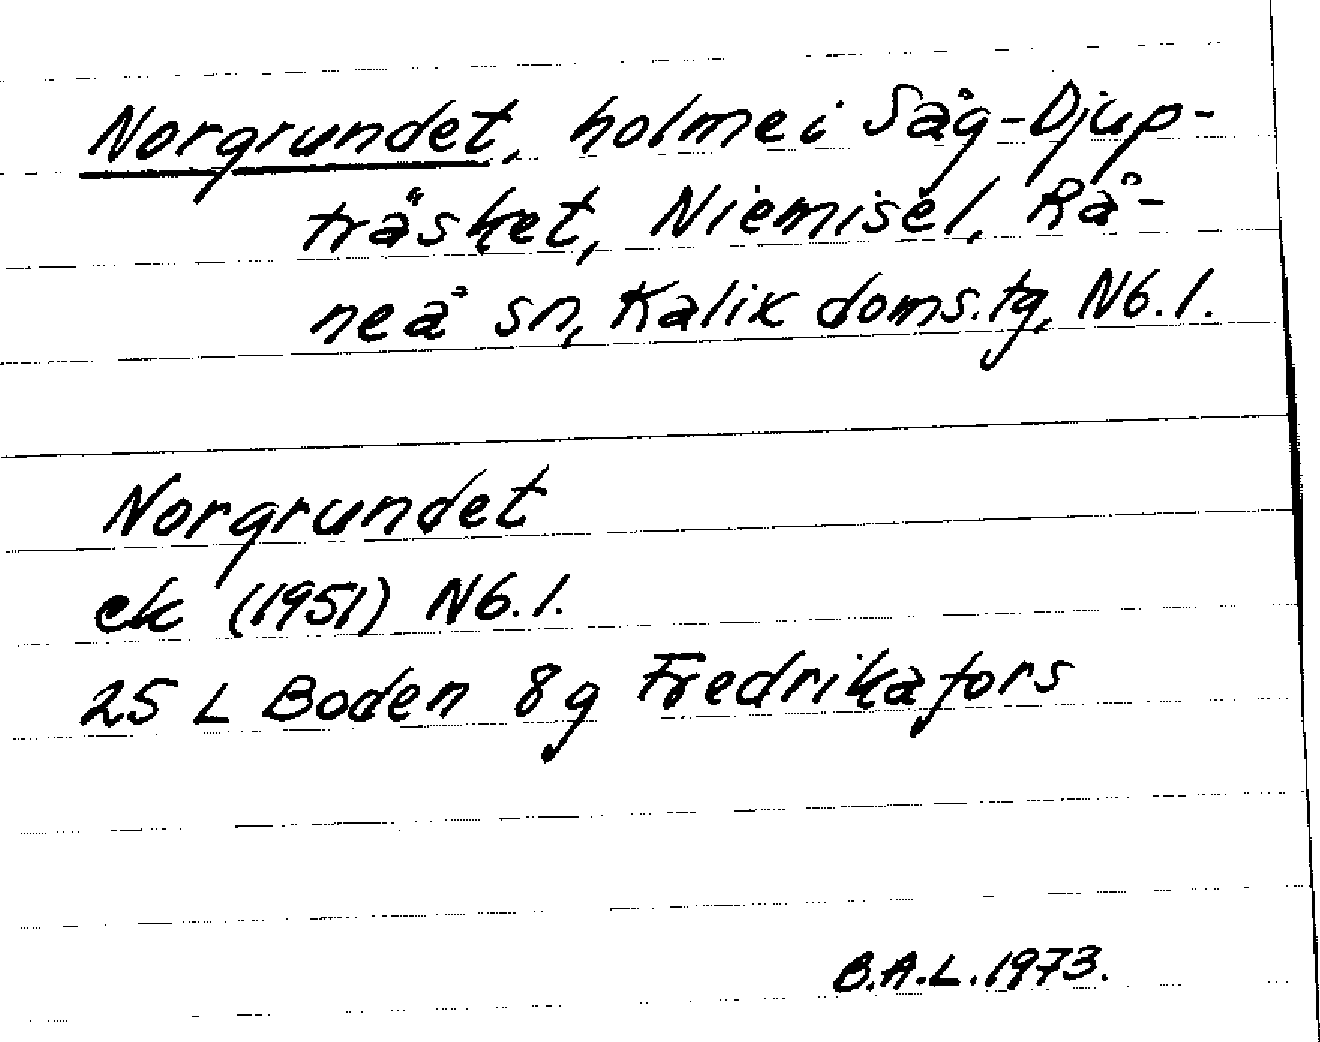 Norgrundet, holme i Såg-Djup-
träsket, Niemisel, Rå-
neå sn, Kalix doms.tg, Nb. l.
Norgrundet
ek (1951) Nb. l.
25 L Boden 8g Fredrikafors
B.A.L. 1973.